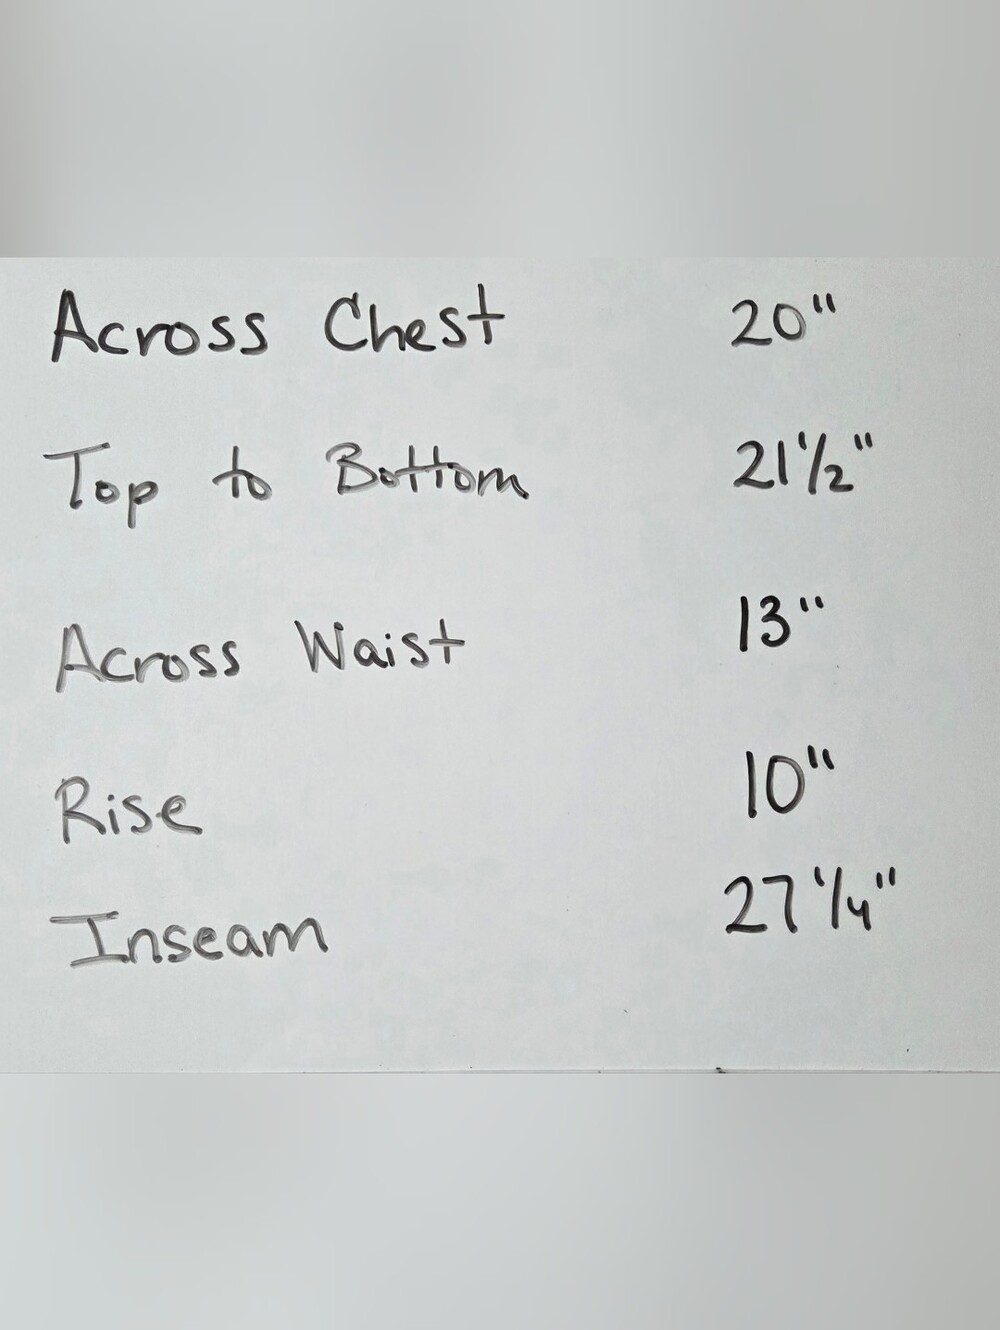 Across Chest 20"
Top to Bottom 21 1/2"
Across Waist 13"
Rise 10"
Inseam 27 1/4"